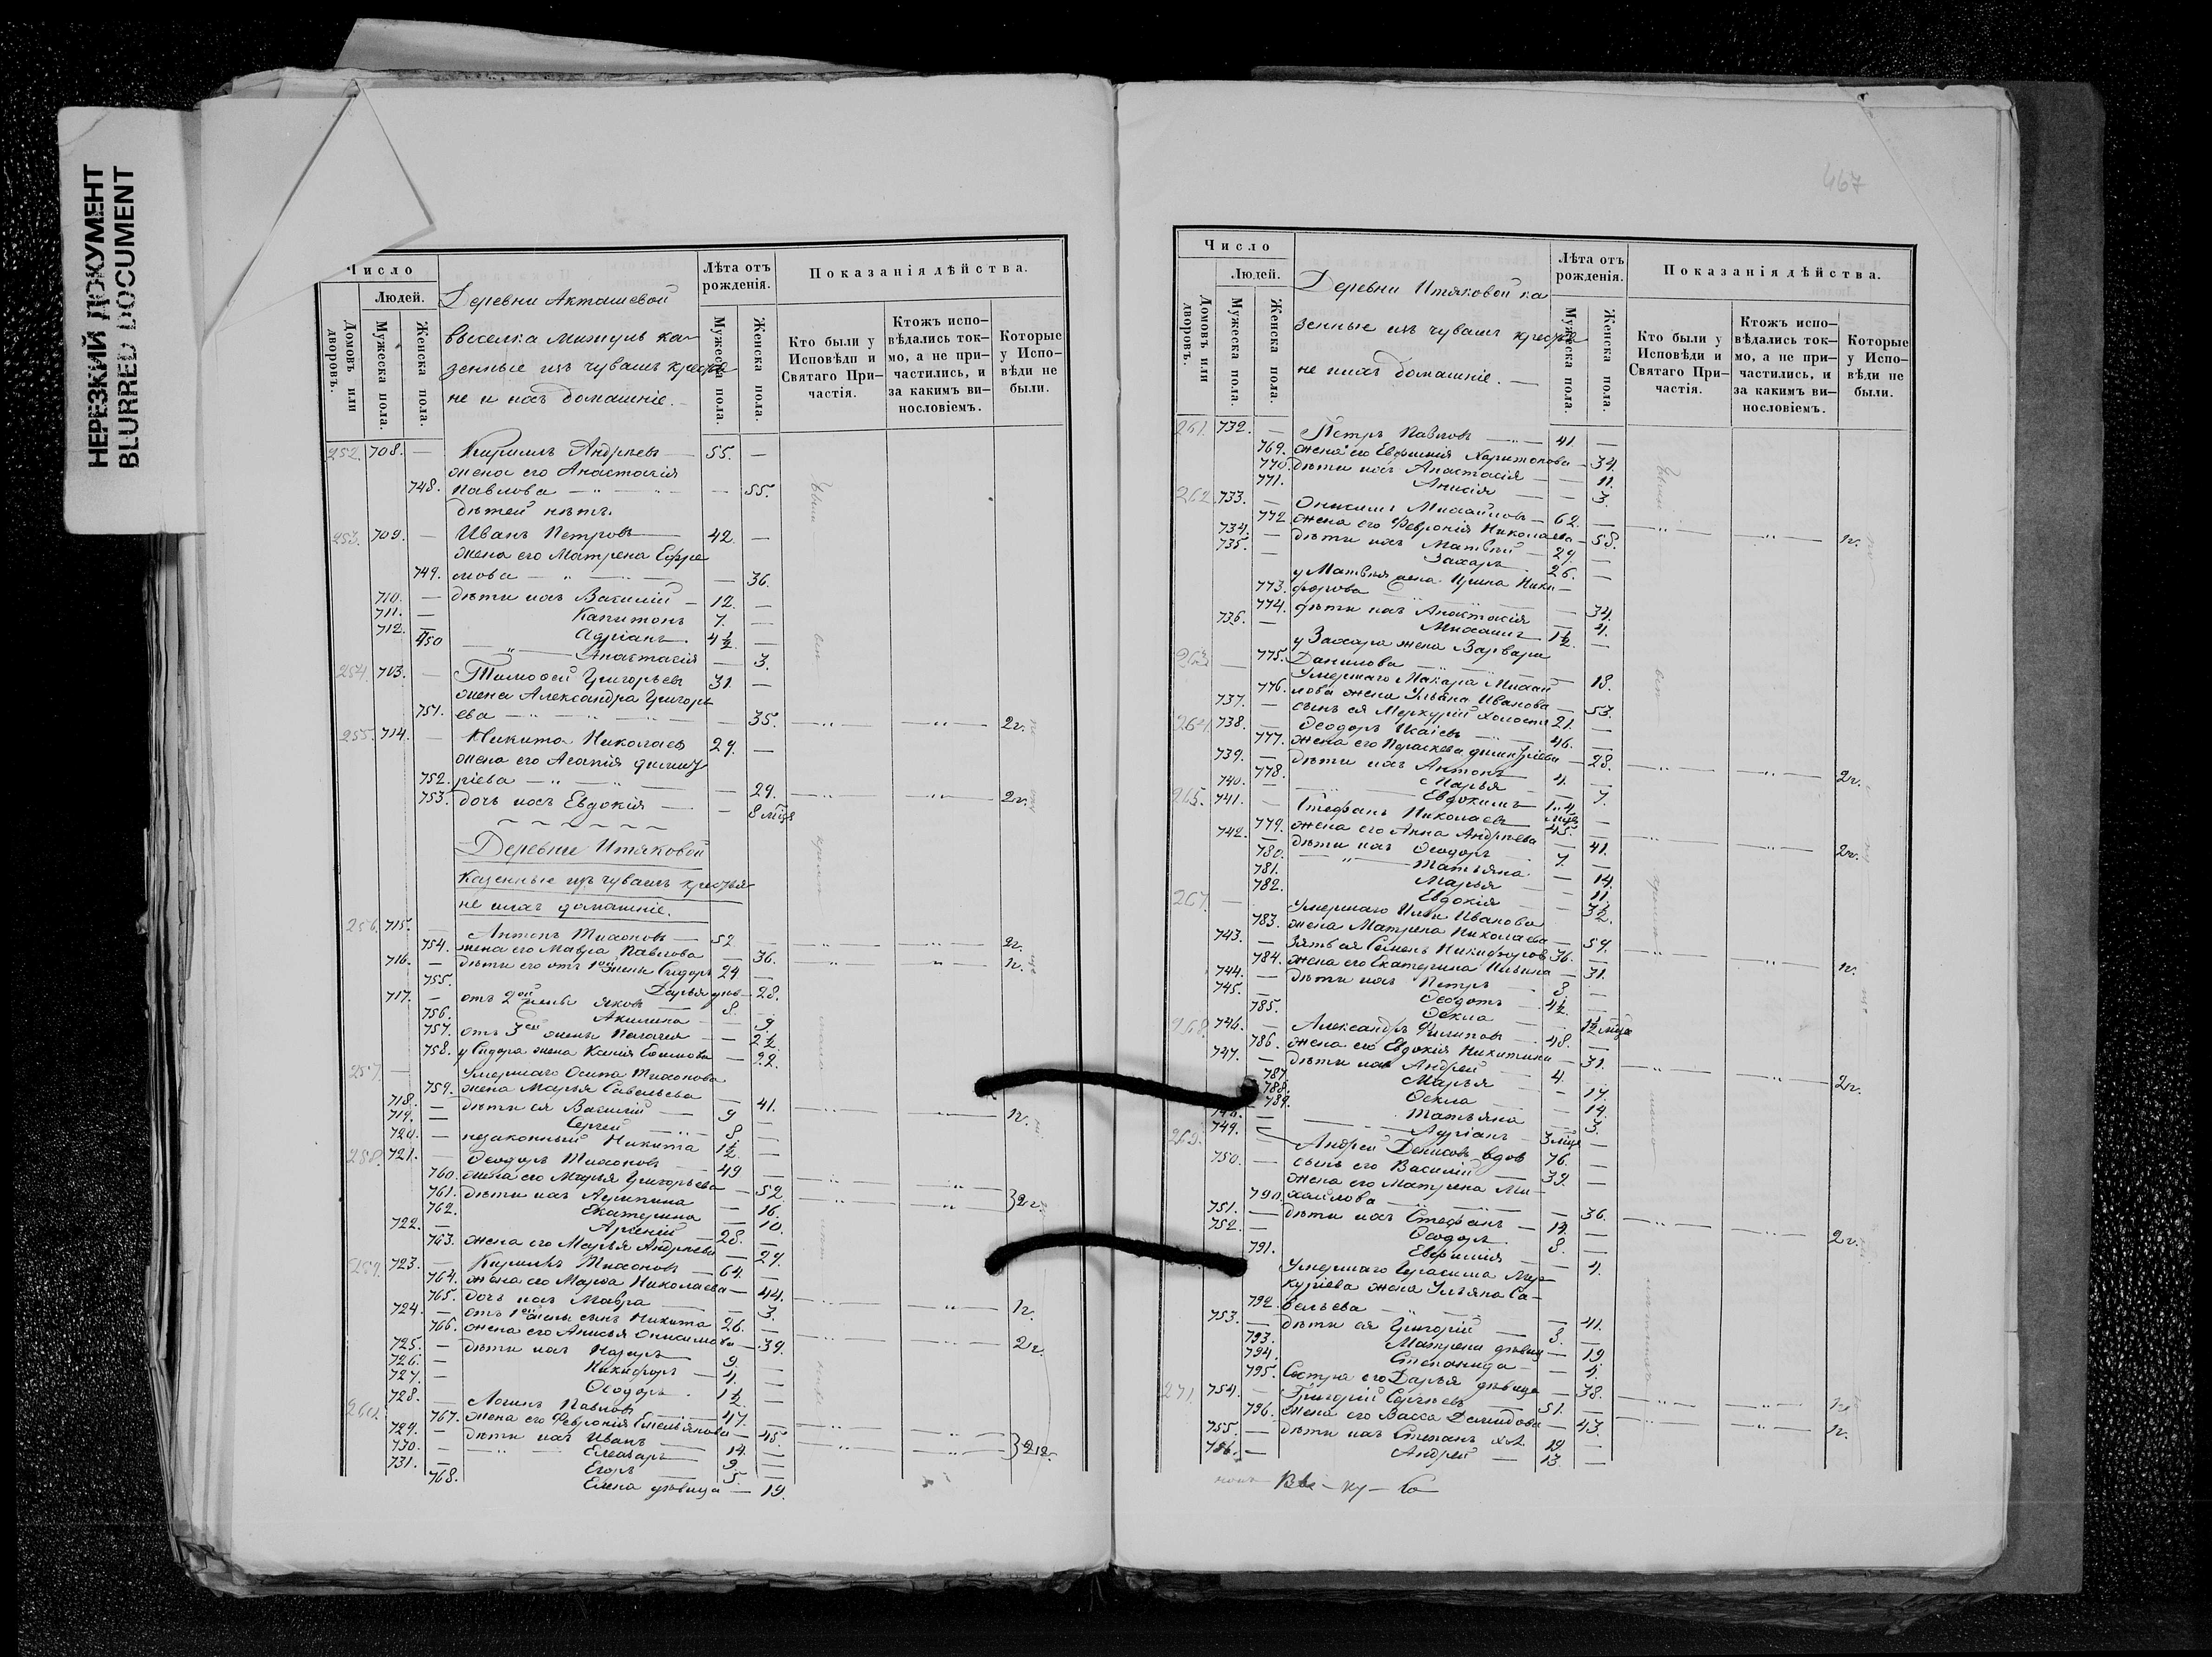 НЕРЕЗКИЙ ДОКУМЕНТ
BLURRED DOCUMENT
Число
Людей.
Домовъ или дворовъ.
Мужеска пола.
Женска пола.
Деревни Акташевой
казенные изъ чувашъ крестья
не и ихъ домашніе.
Лѣта отъ рожденія.
Мужеска пола.
Женска пола.
Показанія дѣйства.
Кто были у Исповѣди и Святаго При-частія.
Ктожъ испо-вѣдались ток-мо, а не при-частились, и за какимъ ви-нословіемъ.
Которые у Испо-вѣди не были.
252. 708. — Кирилъ Андреевъ — 55. —
жена его Анастасія
748. Павлова — 55.
дѣтей нѣтъ.
253. 709. — Иванъ Петровъ 42. —
жена его Матрена Ефре
749. мова — 36.
710. — дѣти ихъ Василій — 12. —
711. — Капитонъ 7. —
712. — Адріанъ. 4½ —
450 Анастасія — 3.
254. 713. — Тимофей Григорьевъ 31. —
жена Александра Григорь
751. ева — 35. 2г.
255. 714. — Никита Николаевъ 29. —
жена его Агапія Дмит
752. ріева — 29. 2г.
753. дочь ихъ Евдокія — 8 мѣц
Деревни Итяковой
казенные изъ чувашъ крестья
не и ихъ домашніе.
256. 715. Антонъ Тихоновъ 52 — 2г.
754. жена его Мавра Павлова — 36. 1г.
716. — дѣти его отъ 1ой жены Сидоръ 24 —
755. Дарья дѣв — 28.
717. — отъ 2ой жены Яковъ 8. —
756. Акилина — 9.
757. отъ 3ей жены Пелагея — 2½
758. у Сидора жена Ксенія — 22.
257. — Умершаго Осипа Тихонова
759. жена Марья Савельева — 41. 1г.
718. — дѣти ея Василій 9 —
719. — Сергей 8 —
720. — незаконный Никита 1½ —
258. 721. — Ѳеодоръ Тихоновъ 49 —
760. жена его Марья Григорьева — 52
761. дѣти ихъ Агрипина — 16. 2г.
762. Екатерина — 10.
722. — Арсеній 28. —
763. жена его Марья Андреева — 29.
259. 723. — Кирилъ Тихоновъ 64. —
764. жена его Марѳа Николаева — 44.
765. дочь ихъ Мавра — 3. 1г.
724. — отъ 1ой жены сынъ Никита 26. —
766. жена его Анисья Онисимова — 39. 2г.
725. — дѣти ихъ Назаръ 9. —
726. — Никифоръ 4. —
727. — Ѳеодоръ. 1½ —
260. 728. — Логинъ Павловъ 47. —
767. жена его Февронія Емельянова — 45.
729. — дѣти ихъ Иванъ 14. — 2г.
730. — Елеазаръ 9. —
731. — Егоръ 5. —
768. Елена дѣвица — 19.
467
Число
Людей.
Домовъ или дворовъ.
Мужеска пола.
Женска пола.
Деревни Итяковой ка
зенные изъ чувашъ крестья
не и ихъ домашніе. —
Лѣта отъ рожденія.
Мужеска пола.
Женска пола.
Показанія дѣйства.
Кто были у Исповѣди и Святаго При-частія.
Ктожъ испо-вѣдались ток-мо, а не при-частились, и за какимъ ви-нословіемъ.
Которые у Испо-вѣди не были.
261. 732. — Петръ Павловъ 41 —
769. жена его Евфимія Харитонова — 34.
770. дѣти ихъ Анастасія — 11.
771. Анисія — 3.
262. 733. — Онисимъ Михайловъ — 62. —
772. жена его Февронія Николаева — 58. 1г.
734. — дѣти ихъ Матвей 29. —
735. — Захаръ 26. —
у Матвея жена Ирина Ники
773. форова — 34.
774. дѣти ихъ Анастасія — 4.
736. — Михаилъ 1½ —
у Захара жена Варвара
775. Данилова — 18.
263. — Умершаго Макара Михай
776. лова жена Ульяна Иванова — 53.
737. — сынъ ея Меркурій холостъ 21. —
264. 738. — Ѳеодоръ Исаевъ 46. —
777. жена его Параскева Дмитріева — 28. 2г.
739. — дѣти ихъ Антонъ 4. —
778. Марья — 7.
740. — Евдокимъ 1, 4 мѣц —
265. 741. — Стефанъ Николаевъ 45. —
779. жена его Анна Андреева — 41. 2г.
742. — дѣти ихъ Ѳеодоръ 7. —
780. Татьяна — 14.
781. Марья — 11.
782. Евдокія — 3½
267. — Умершаго Ильи Иванова
783. жена Матрена Николаева — 59. 1г.
743. — Зять ея Семенъ Никифоровъ 36. —
784. жена его Екатерина Ильина — 31.
744. — дѣти ихъ Петръ 8 —
745. — Ѳеодотъ 4½ —
785. Ѳекла — 1½ мѣца
268. 746. — Александръ Филиповъ 48. —
786. жена его Евдокія Никитина — 31. 2г.
747. — дѣти ихъ Андрей 4. —
787. Марья — 17.
788. Ѳекла — 14.
789. Татьяна — 3.
748. — Адріанъ 3 мѣц —
269. 749. Андрей Денисовъ вдов 76. —
750. — сынъ его Василій 39. —
жена его Матрена Ми-
790. хайлова — 36. 2г.
751. — дѣти ихъ Стефанъ — 14. —
752. — Ѳеодоръ 8. —
791. Евфимія — 4.
Умершаго Герасима Мер-
куріева жена Ульяна Са-
792. вельева — 41.
753. — дѣти ея Григорій 8. —
793. Матрена дѣвиц — 19
794. Степанида — 4.
795. Сестра его Дарья дѣвица — 38. 1г.
271. 754. — Григорій Сергѣевъ 51. —
796. жена его Васса Демидова — 43. 1г.
755. — дѣти ихъ Степанъ хол. 19. —
756. — Андрей — 13. —